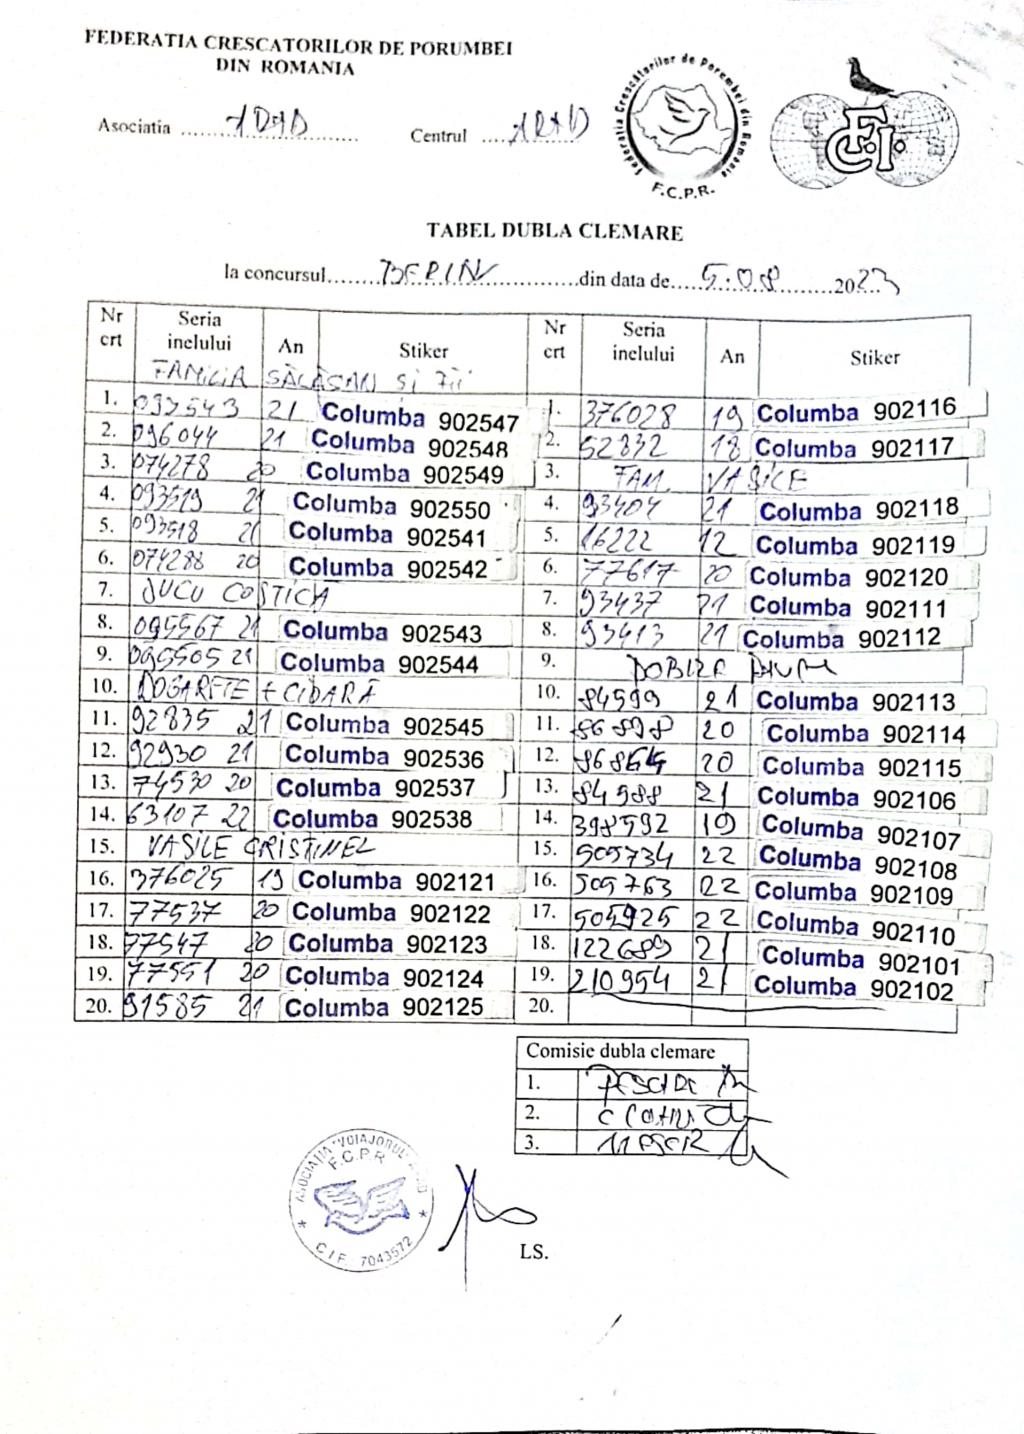 FEDERATIA CRESCATORILOR DE PORUMBEI
DIN ROMANIA
Asociatia ARAD Centrul ARAD
Federatia Crescătorilor de Porumbei din Romania
F.C.P.R.
F.C.I.
TABEL DUBLA CLEMARE
la concursul BERLIN din data de 5.08 2023
Nr crt Seria inelului An Stiker Nr crt Seria inelului An Stiker
FAMILIA SĂLĂȘAN ȘI FII
1. 093543 21 Columba 902547 1. 376028 19 Columba 902116
2. 096044 21 Columba 902548 2. 52832 18 Columba 902117
3. 074278 20 Columba 902549 3. FAM. VASILE
4. 093519 21 Columba 902550 4. 93404 21 Columba 902118
5. 093518 21 Columba 902541 5. 16222 12 Columba 902119
6. 074288 20 Columba 902542 6. 77617 20 Columba 902120
7. DUCU COSTICA 7. 93437 21 Columba 902111
8. 095567 21 Columba 902543 8. 93413 21 Columba 902112
9. 095505 21 Columba 902544 9.
10. 10. 84599 21 Columba 902113
11. 92835 21 Columba 902545 11. 86898 20 Columba 902114
12. 92930 21 Columba 902536 12. 86864 20 Columba 902115
13. 74530 20 Columba 902537 13. 84988 21 Columba 902106
14. 63107 22 Columba 902538 14. 398592 19 Columba 902107
15. VASILE CRISTINEL 15. 505734 22 Columba 902108
16. 376025 19 Columba 902121 16. 505763 22 Columba 902109
17. 77537 20 Columba 902122 17. 505925 22 Columba 902110
18. 77547 20 Columba 902123 18. 122689 21 Columba 902101
19. 77551 20 Columba 902124 19. 210954 21 Columba 902102
20. 91585 21 Columba 902125 20.
Comisie dubla clemare
1.
2.
3.
ASOCIATIA "VOIAJORUL" ARAD
F.C.P.R
C.I.F. 7043572
LS.